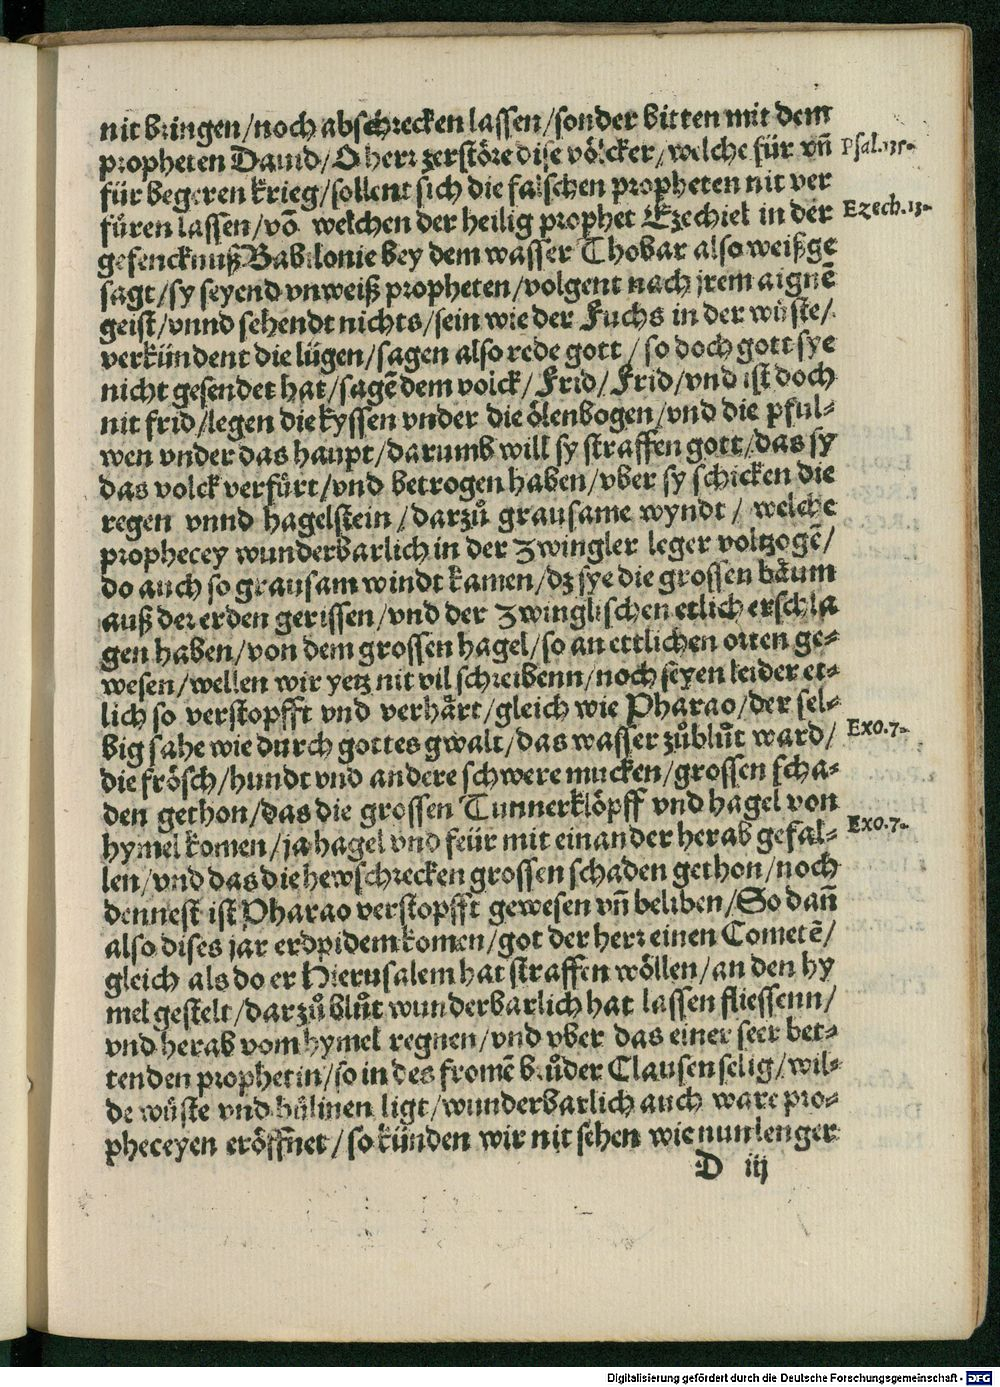 nit bringen/noch abschrecken lassen/sonder bitten mit dem
propheten Dauid/O herr zerstöre dise völcker/welche für vñ
Psal.135.
für begeren krieg/sollent sich die falschen propheten nit ver
füren lassen/võ welchen der heilig prophet Ezechiel in der
Ezech.13.
gefencknuß Babilonie bey dem wasser Thobar also weißge
sagt/sy seyend vnweiß propheten/volgent nach jrem aignẽ
geist/vnnd sehendt nichts/sein wie der Fuchs in der wüste/
verkündent die lügen/sagen also rede gott/so doch gott sye
nicht gesendet hat/sagẽ dem volck/Frid/Frid/vnd ist doch
nit frid/legen die kyssen vnder die ölenbogen/vnd die pful-
wen vnder das haupt/darumb will sy straffen gott/das sy
das volck verfürt/vnd betrogen haben/vber sy schicken die
regen vnnd hagelstein/darzů grausame wyndt/welche
prophecey wunderbarlich in der Zwingler leger voltzogẽ/
do auch so grausam windt kamen/dz sye die grossen bäum
auß der erden gerissen/vnd der Zwinglischen etlich erschla
gen haben/von dem grossen hagel/so an ettlichen orten ge-
wesen/wellen wir yetz nit vil schreibenn/noch seyen leider et-
lich so verstopfft vnd verhärt/gleich wie Pharao/der sel-
big sahe wie durch gottes gwalt/das wasser zů blůt ward/
Exo.7.
die frösch/hundt vnd andere schwere mucken/grossen scha-
den gethon/das die grossen Tunnerklöpff vnd hagel von
hymel komen/ja hagel vnd feür mit einander herab gefal-
Exo.7.
len/vnd das die hewschrecken grossen schaden gethon/noch
dennest ist Pharao verstopfft gewesen vñ beliben/So dañ
also dises jar erdpidem komen/got der herr einen Cometẽ/
gleich als do er Hierusalem hat straffen wöllen/an den hy
mel gestelt/darzů blůt wunderbarlich hat lassen fliessenn/
vnd herab vom hymel regnen/vnd vber das einer seer bet-
tenden prophetin/so in des fromẽ brůder Clausen selig/wil-
de wüste vnd hülinen ligt/wunderbarlich auch ware pro-
pheceyen eröffnet/so künden wir nit sehen wie nun lenger
D iij
Digitalisierung gefördert durch die Deutsche Forschungsgemeinschaft - DFG